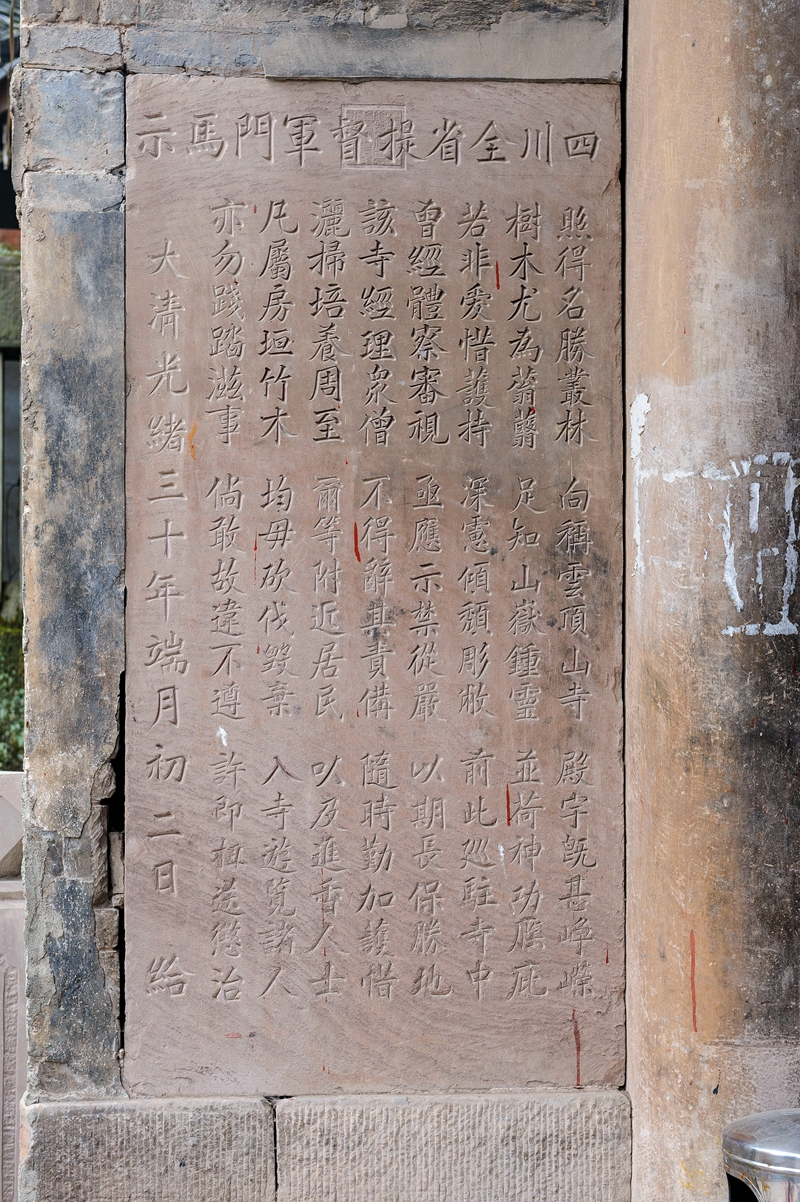 四川全省提督軍門馬示
照得名勝叢林 向稱雲頂山寺 殿宇既甚崢嶸
樹木尤為蓊蘙 足知山嶽鍾靈 並荷神功廕庇
若非愛惜護持 深慮傾頹彫敝 前此巡駐寺中
曾經體察審視 亟應示禁從嚴 以期長保勝地
該寺經理衆僧 不得辭其責備 隨時勤加護惜
灑掃培養周至 爾等附近居民 以及進香人士
凡屬房垣竹木 均毋砍伐毀棄 入寺遊覽諸人
亦勿踐踏滋事 倘敢故違不遵 許即稟送懲治
大清光緒三十年端月初二日 給